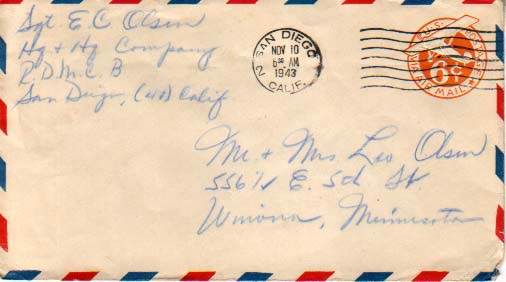 Sgt. E.C. Olsen
Hq + Hq Company
R.D.M.C.B
San Diego, (40) Calif.
SAN DIEGO
NOV 10
6 30 AM
1943
2 CALIF.
U.S. POSTAGE
6¢
VIA AIR MAIL
Mr. + Mrs Leo Olsen
556 1/2 E. 5th St.
Winona, Minnesota